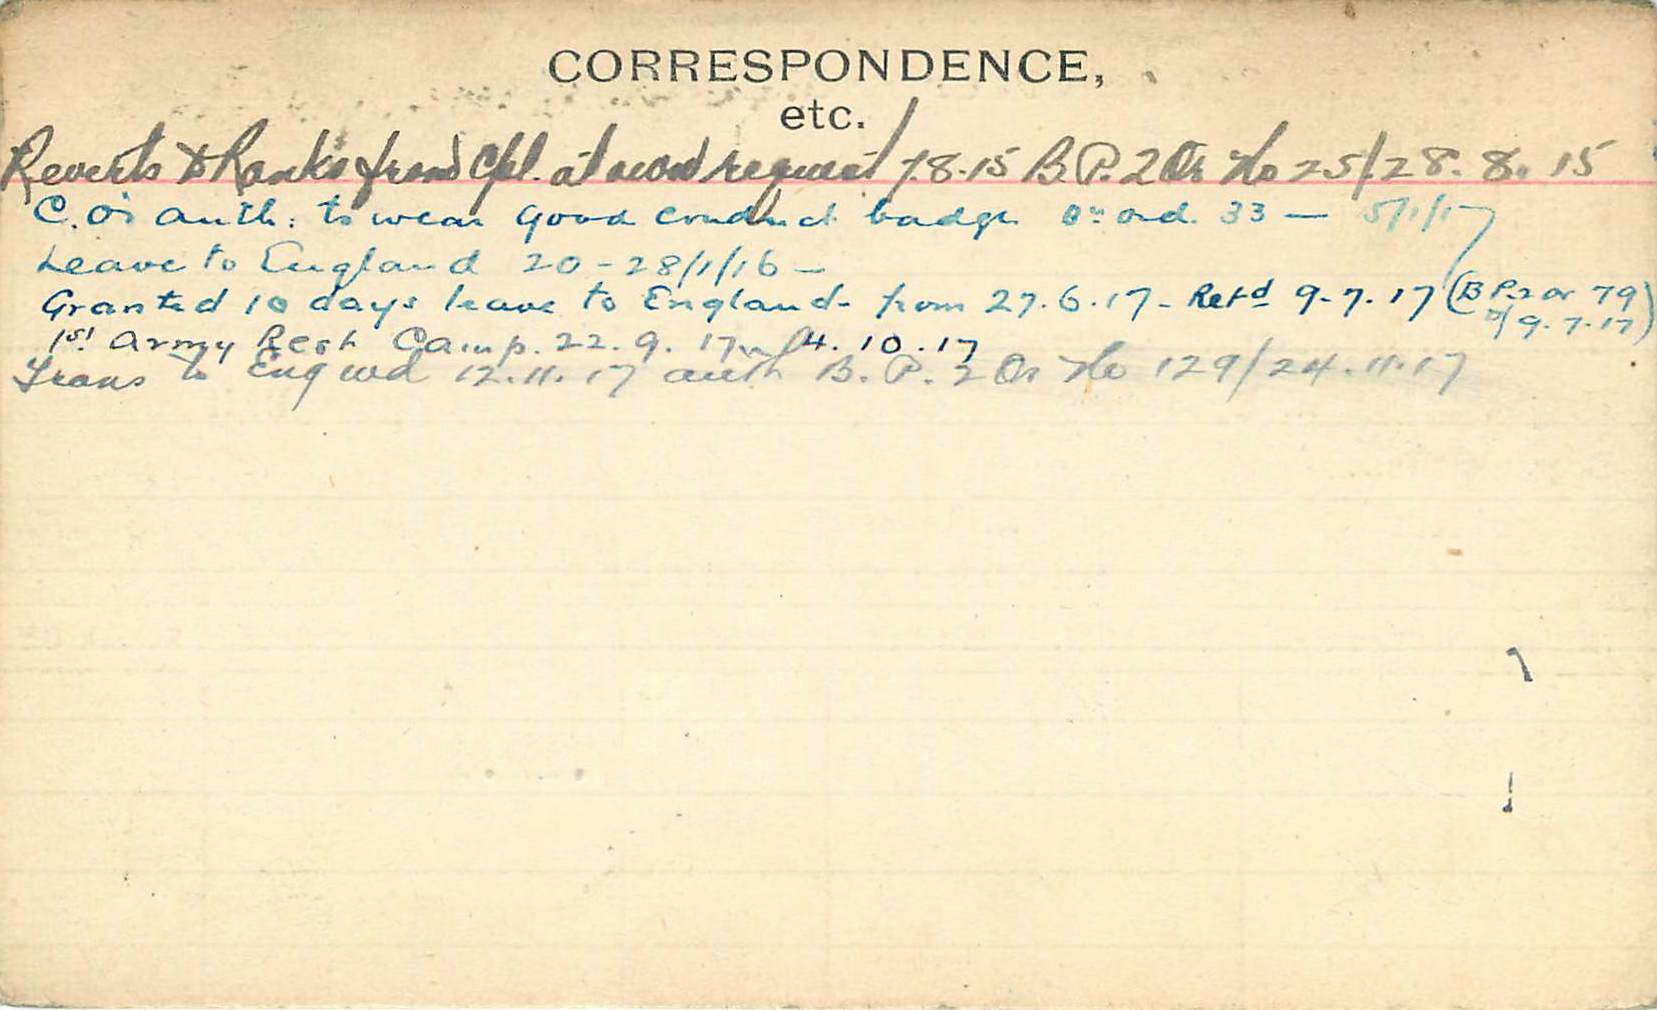 CORRESPONDENCE,
etc.
Reverts to Ranks from Cpl. at own request 7.8.15 B.P. 2 Or No 25/28.8.15
C.O's auth: to wear good conduct badge Bn ord. 33 — 5/1/17
Leave to England 20-28/1/16 —
Granted 10 days leave to England - from 27.6.17 - Retd 9-7.17 (B P.2 or 79
d/9.7.17)
1st Army Rest Camp. 22.9.17 4.10.17
Trans to Eng wd 12.11.17 auth B.P. 2 Or No 129/24.11.17